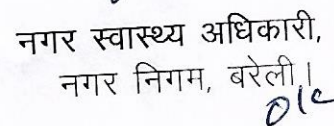 नगर स्वास्थ्य अधिकारी,
नगर निगम, बरेली।